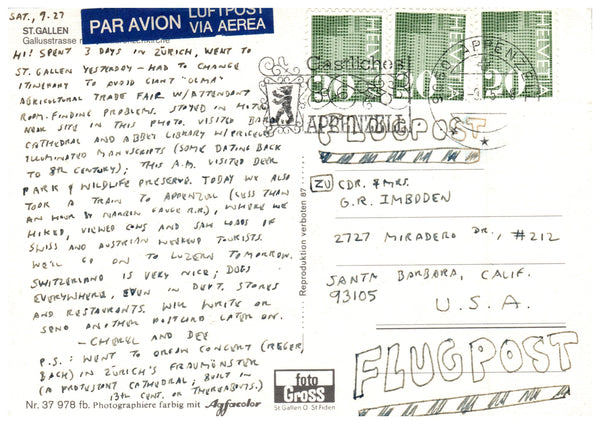 SAT., 9-27
ST. GALLEN
Gallusstrasse
PAR AVION
LUFTPOST
VIA AEREA
HI! SPENT 3 DAYS IN ZÜRICH, WENT TO
ST. GALLEN YESTERDAY – HAD TO CHANGE
ITINERARY TO AVOID GIANT "OLMA"
AGRICULTURAL TRADE FAIR W/ATTENDANT
ROOM-FINDING PROBLEMS. STAYED IN HOTEL
NEAR SITE IN THIS PHOTO. VISITED
CATHEDRAL AND ABBEY LIBRARY W/PRICELESS
ILLUMINATED MANUSCRIPTS (SOME DATING BACK
TO 8TH CENTURY); THIS A.M. VISITED DEER
PARK & WILDLIFE PRESERVE. TODAY WE ALSO
TOOK A TRAIN TO APPENZELL (LESS THAN
AN HOUR BY NARROW GAUGE R.R.), WHERE WE
HIKED, VIEWED COWS AND SAW LOADS OF
SWISS AND AUSTRIAN WEEKEND TOURISTS.
WE'LL GO ON TO LUZERN TOMORROW.
SWITZERLAND IS VERY NICE; DOGS
EVERYWHERE, EVEN IN DEPT. STORES
AND RESTAURANTS. WILL WRITE OR
SEND ANOTHER POSTCARD LATER ON.
– CHERYL AND DEE
P.S.: WENT TO ORGAN CONCERT (REGER,
BACH) IN ZÜRICH'S FRAUMÜNSTER
(A PROTESTANT CATHEDRAL, BUILT IN
13TH CENT. OR THEREABOUTS.)
Nr. 37 978 fb. Photographiere farbig mit Agfacolor
foto
Gross
St. Gallen O St. Fiden
Reproduktion verboten 87
HELVETIA
30
HELVETIA
HELVETIA
20
Gastliches
APPENZELL
FLUGPOST
ZU CDR. & MRS.
G.R. IMBODEN
2727 MIRADERO DR., #212
SANTA BARBARA, CALIF.
93105
U.S.A.
FLUGPOST